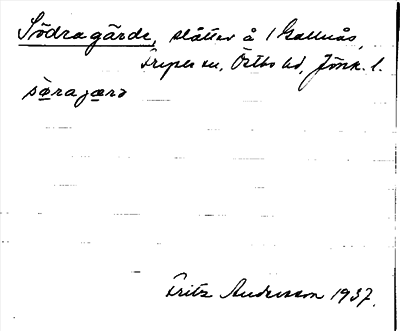 Södragärde, slåtter å 1 Gallnås,
Fryele sn, Östbo hd, Jönk. l.
sø̀rajærə
Fritz Andersson 1937.